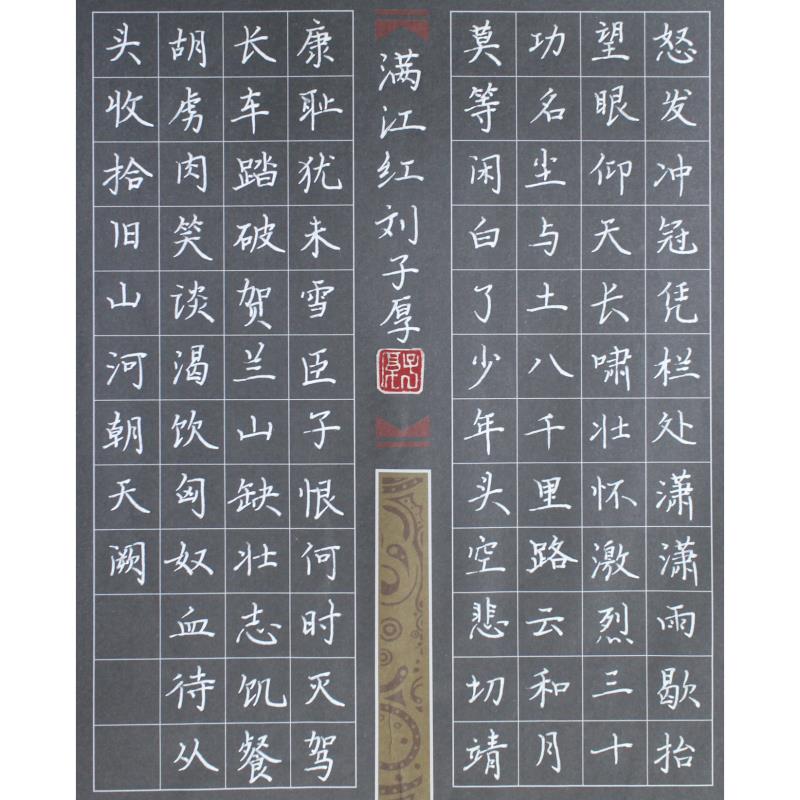 怒发冲冠凭栏处潇潇雨歇抬
望眼仰天长啸壮怀激烈三十
功名尘与土八千里路云和月
莫等闲白了少年头空悲切靖
康耻犹未雪臣子恨何时灭驾
长车踏破贺兰山缺壮志饥餐
胡虏肉笑谈渴饮匈奴血待从
头收拾旧山河朝天阙
满江红刘子厚